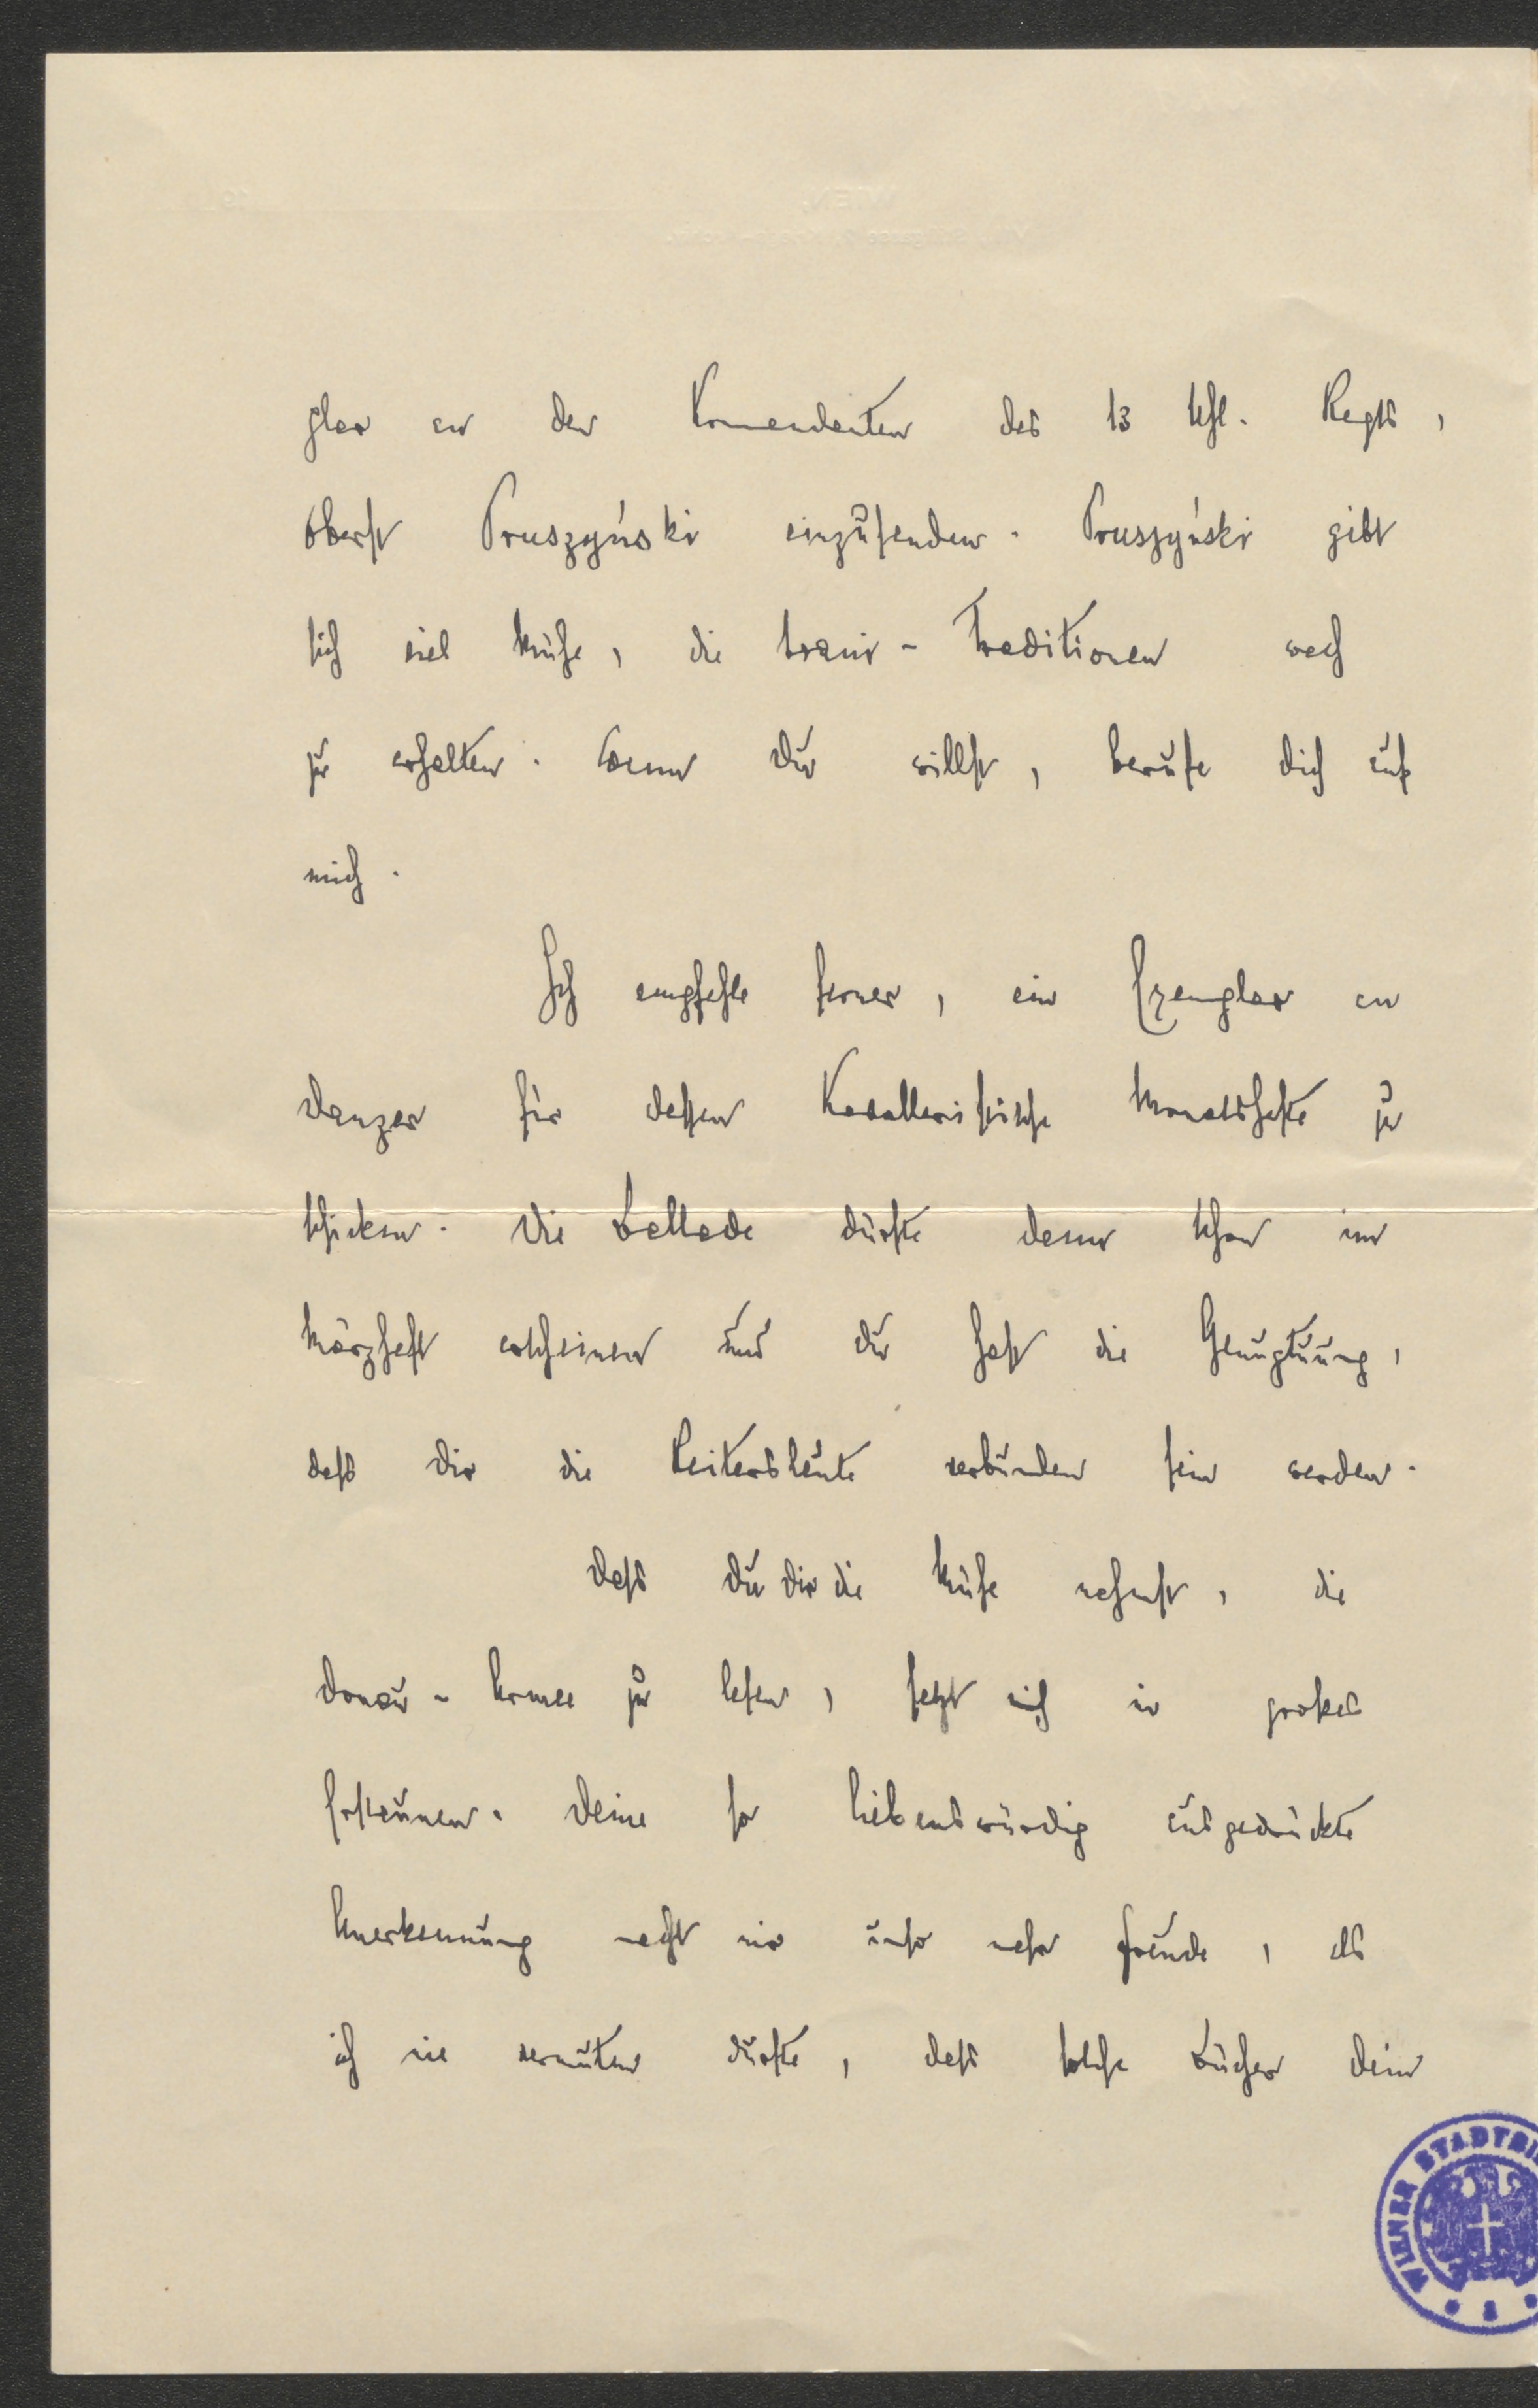 plar an den Komendanten des 13 Uhl. Regts,
Oberst Pruszyński einzusenden. Pruszyński gibt
sich viel Mühe, die Trani-Traditionen wach
zu erhalten. Wenn Du willst, berufe Dich auf
mich.
Ich empfehle ferner, ein Exemplar an
Danzer für dessen Kavalleristische Monatshefte zu
schicken. Die Ballade dürfte dann schon im
Märzheft erscheinen und Du hast die Genugtuung,
daß Dir die Reitersleute verbunden sein werden.
Daß Du Dir die Mühe nahmst, die
Donau-Armee zu lesen, setzt mich in großes
Erstaunen. Deine so liebenswürdig ausgedrückte
Anerkennung macht mir umso mehr Freude, als
ich nie vermuten durfte, daß solche Bücher Dein
WIENER STADTBI